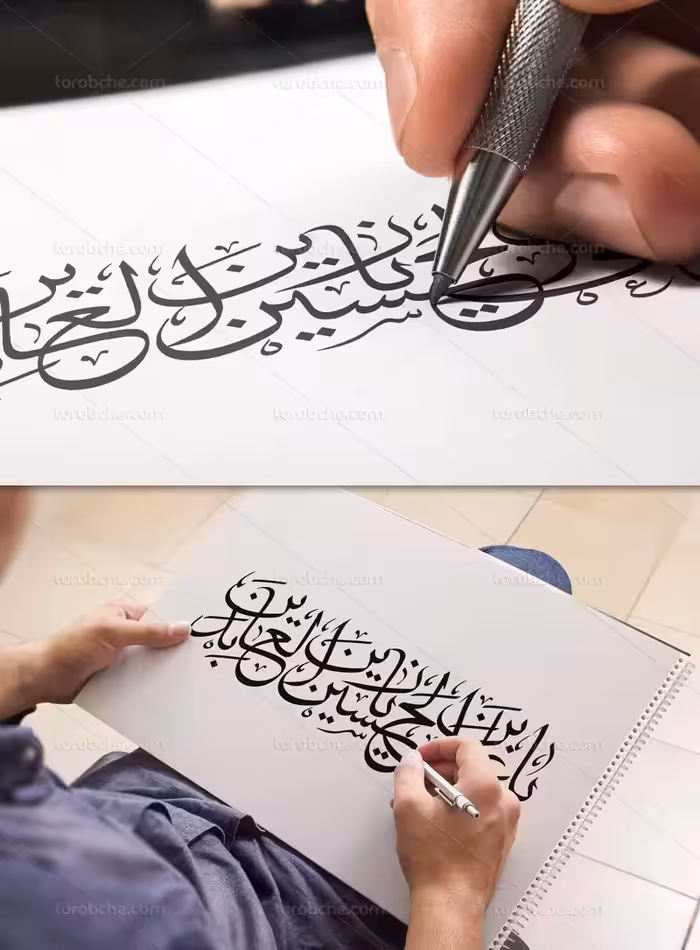 torobche.com torobche.com torobche.com
torobche.com torobche.com torobche.com
الحسین یا زین
torobche.com torobche.com torobche.com
torobche.com torobche.com torobche.com
یا ابن الحسین یا زین العابدین
torobche.com torobche.com torobche.com
torobche.com torobche.com torobche.com